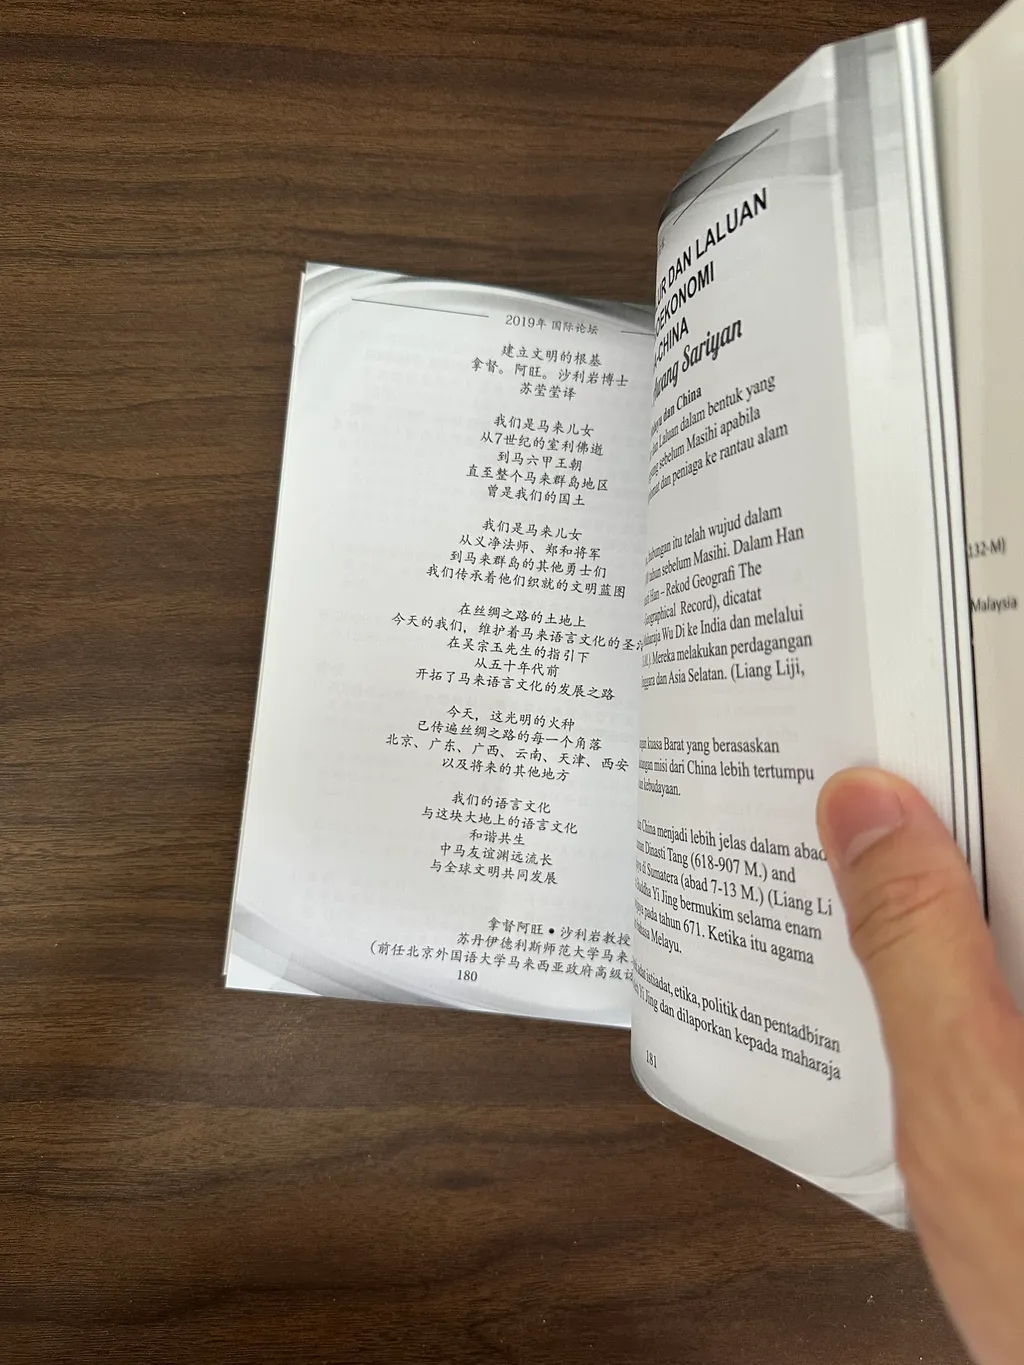 2019年 国际论坛
建立文明的根基
拿督。阿旺。沙利岩博士
苏莹莹译
我们是马来儿女
从7世纪的室利佛逝
到马六甲王朝
直至整个马来群岛地区
曾是我们的国土
我们是马来儿女
从义净法师、郑和将军
到马来群岛的其他勇士们
我们传承着他们织就的文明蓝图
在丝绸之路的土地上
今天的我们，维护着马来语言文化的圣
在吴宗玉先生的指引下
从五十年代前
开拓了马来语言文化的发展之路
今天，这光明的火种
已传遍丝绸之路的每一个角落
北京、广东、广西、云南、天津、西安
以及将来的其他地方
我们的语言文化
与这块大地上的语言文化
和谐共生
中马友谊渊远流长
与全球文明共同发展
拿督阿旺•沙利岩教授
苏丹伊德利斯师范大学马来
(前任北京外国语大学马来西亚政府高级访
180
DAN LALUAN
EKONOMI
CHINA
Sariyan
dan China
dan Laluan dalam bentuk yang
sebelum Masihi apabila
dan peniaga ke rantau alam
hubungan itu telah wujud dalam
tahun sebelum Masihi. Dalam Han
Han – Rekod Geografi The
Geographical Record), dicatat
Wu Di ke India dan melalui
Mereka melakukan perdagangan
dan Asia Selatan. (Liang Liji,
kuasa Barat yang berasaskan
misi dari China lebih tertumpu
kebudayaan.
China menjadi lebih jelas dalam abad
Dinasti Tang (618-907 M.) and
di Sumatera (abad 7-13 M.) (Liang Li
Yi Jing bermukim selama enam
pada tahun 671. Ketika itu agama
Melayu.
istiadat, etika, politik dan pentadbiran
Yi Jing dan dilaporkan kepada maharaja
181
132-M)
Malaysia